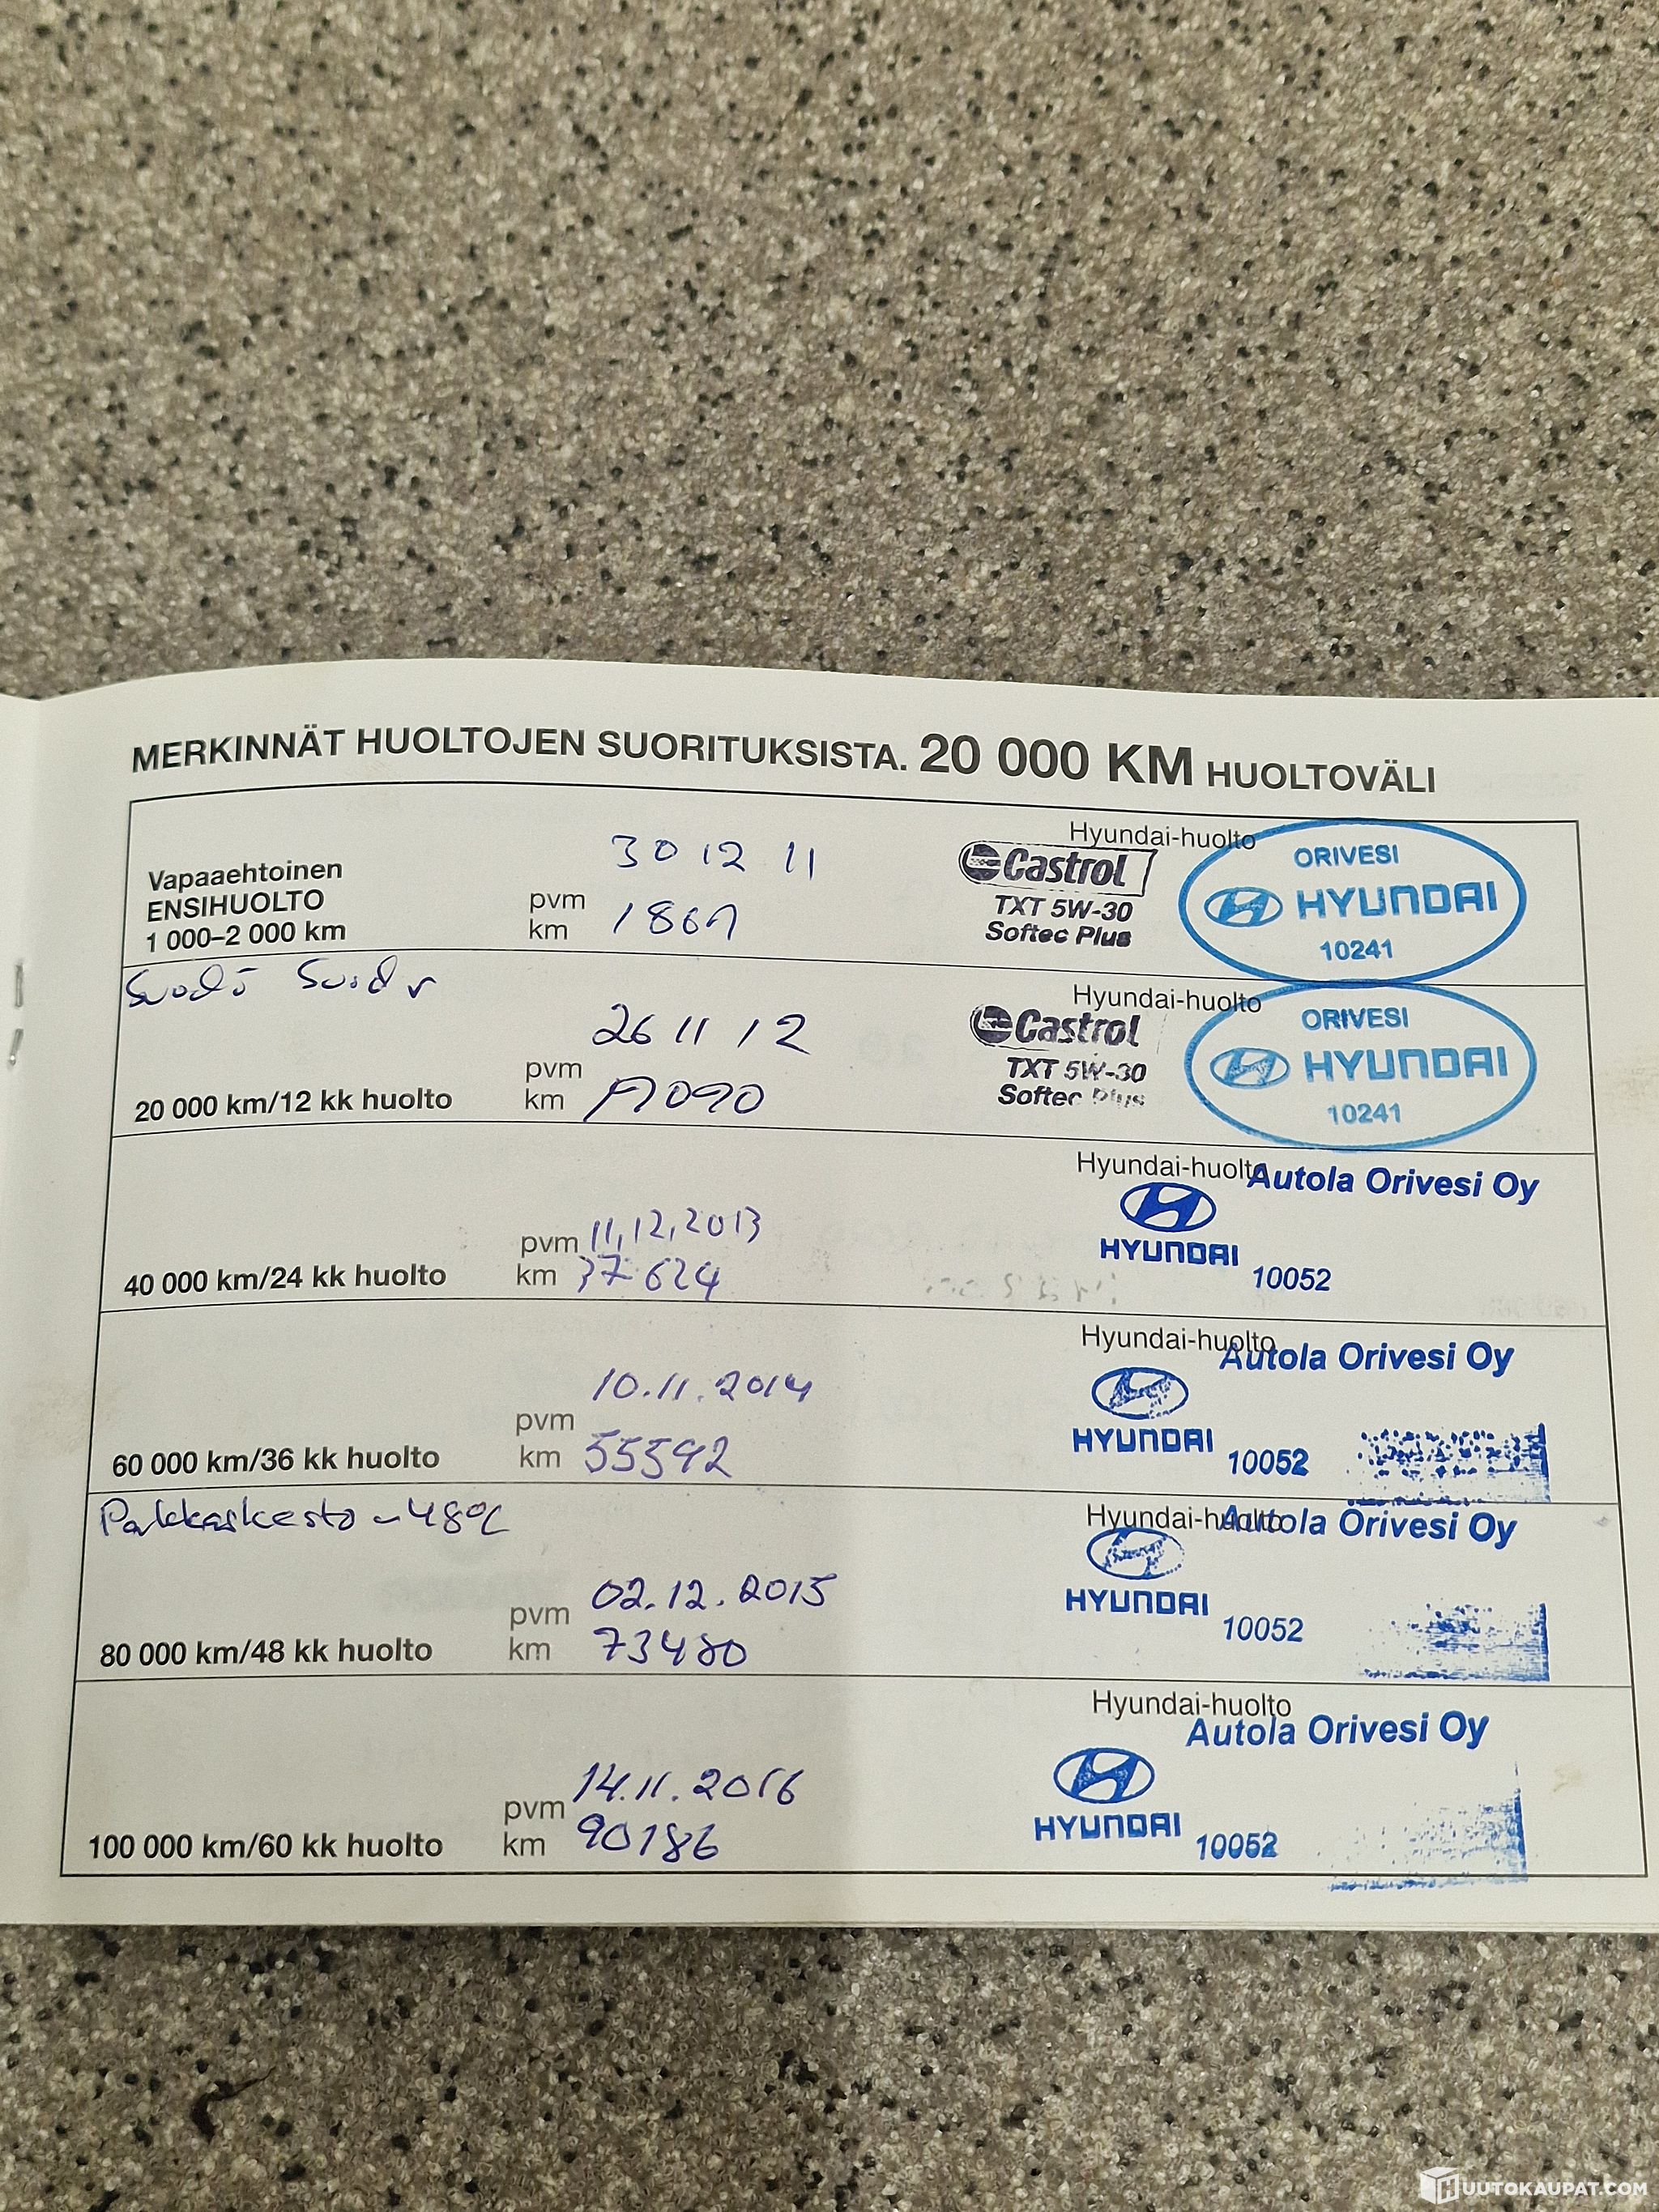 MERKINNÄT HUOLTOJEN SUORITUKSISTA. 20 000 KM HUOLTOVÄLI
Vapaaehtoinen
ENSIHUOLTO
1 000–2 000 km
pvm 30 12 11
km
Castrol
TXT 5W-30
Softec Plus
Hyundai-huolto
ORIVESI
HYUNDAI
10241
20 000 km/12 kk huolto
pvm 26 11 12
km
Castrol
TXT 5W-30
Softec Plus
Hyundai-huolto
ORIVESI
HYUNDAI
10241
40 000 km/24 kk huolto
pvm 11.12.2013
km 37624
Hyundai-huolto
Autola Orivesi Oy
HYUNDAI
10052
60 000 km/36 kk huolto
pvm 10.11.2014
km 55592
Hyundai-huolto
Autola Orivesi Oy
HYUNDAI
10052
Pakkaskesto -48°C
80 000 km/48 kk huolto
pvm 02.12.2015
km 73480
Hyundai-huolto
Autola Orivesi Oy
HYUNDAI
10052
100 000 km/60 kk huolto
pvm 14.11.2016
km 90186
Hyundai-huolto
Autola Orivesi Oy
HYUNDAI
10052
HUUTOKAUPAT.COM